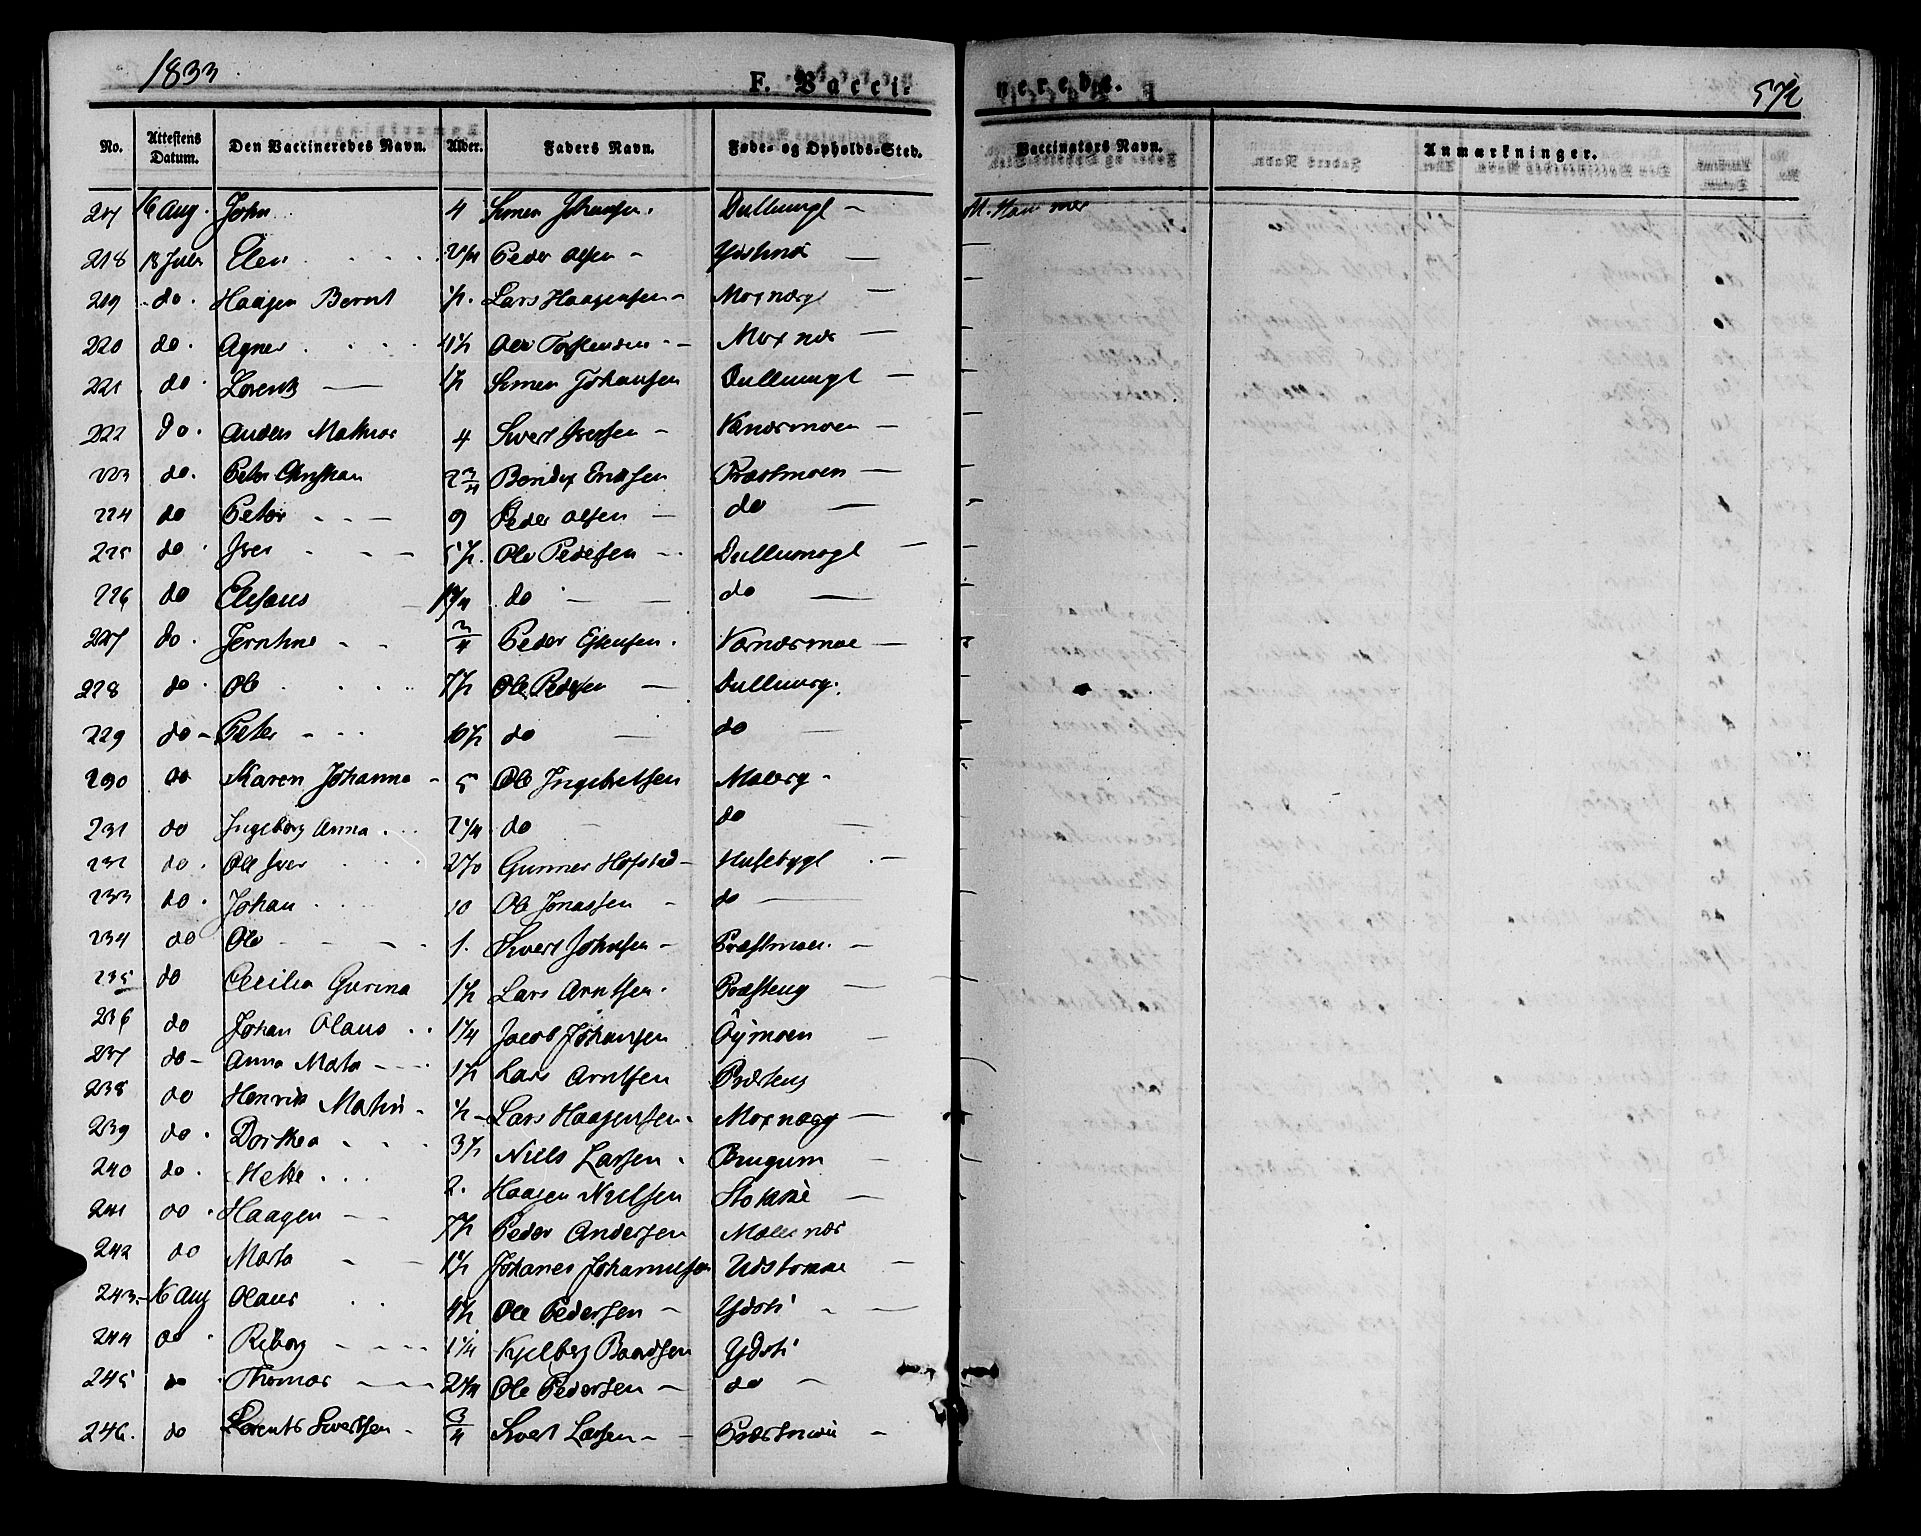 1833
F. Vaccinerede.
572
No. Attestens Datum. Den Vaccineredes Navn. Alder. Faders Navn. Føde- og Opholds-Sted. Vaccinators Navn. Anmærkninger.
217 16 Aug. John 4 Simen Johansen. Dullumgl - M. Hammer
218 18 Julii Elen 2 1/4 Peder Olsen - Ydstnæs -
219 do. Haagen Bernt 1/2. Lars Haagensen - Moxnæsg
220 do. Agnes 4 1/2 Ole Torstensen - Moxnæs -
221 do. Lorents 1/2 Simen Johansen Dullumgl -
222 do. Anders Mathias 4 Sivert Iversen - Værnesmoen -
223 do. Peter Christian 2 3/4 Bendix Ericksen Præstmoen -
224 do Peter 9 Peder Olsen - do -
225 do Iver 5 1/2. Ole Pedersen - Dullumgl -
226 do Elisæus 1 1/4 do - do -
227 do. 3/4 Peder Estensen. Værnesmoe -
228 do. Ole 7 1/2 Ole Pedersen - Dullumg.
229 do - Peter 10 1/2 do - do -
230 do Karen Johanna - 5 Ole Ingebretsen Moberg -
231 do Ingeborg Anna 2 1/4 do - do -
232 do. Ole Iver Gunner Hofstad - Husebygl -
233 do. Johan 10 Ole Jonassen - do -
234 do Ole 1. Sivert Johnsen - Præstmoen. -
235 do Cecilia Gurina 1 1/2 Lars Arntsen. Præsteng -
236 do Johan Olaus 1 1/4 Jacob Johansen Øymoen
237 do - Anna Marta 1 1/2 Lars Arntsen Præsteng
238 do Henrik Martin - 1/2 - Lars Haagensen. Moxnæsg -
239 do. Dorthea 3 1/2 Niels Larsen. Brugum -
240 do. Mette 2. Haagen Nielsen Stokke -
241 do. Haagen 7 1/2 Peder Andersen Mælenæs
242 do Marta 1 1/2 Johanes Johannesen Udstokke -
243 - 16 Aug Olaus 4 1/2 Ole Pedersen - Ydsti -
244 do. Reborg 1 1/4 Kjelberg Baardsen Ydsti
245 do Thomas 2 1/4 Ole Pedersen - do -
246. do Lorents Sivertsen 3/4 Sivert Larsen - Præstmoe -